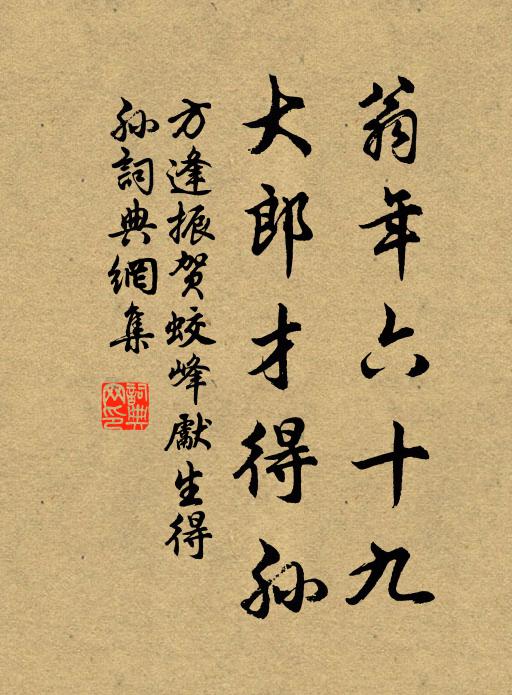 翁年六十九
大郎才得孙
方逢振贺蛟峰獻生得
孙詞典網集
詞典
网印